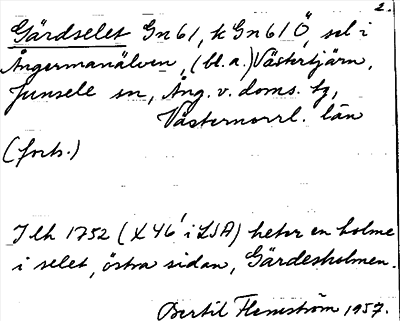 2.
Gärdselet Gn61, k Gn61Ö, sel i
Ångermanälven, (bl. a.) Västertjärn,
Junsele sn, Ång. v. doms. tg,
Västernorrl. län
(forts.)
I lh 1752 (X46¹ i LSA) heter en holme
i selet, östra sidan, Gärdesholmen.
Bertil Flemström 1957.